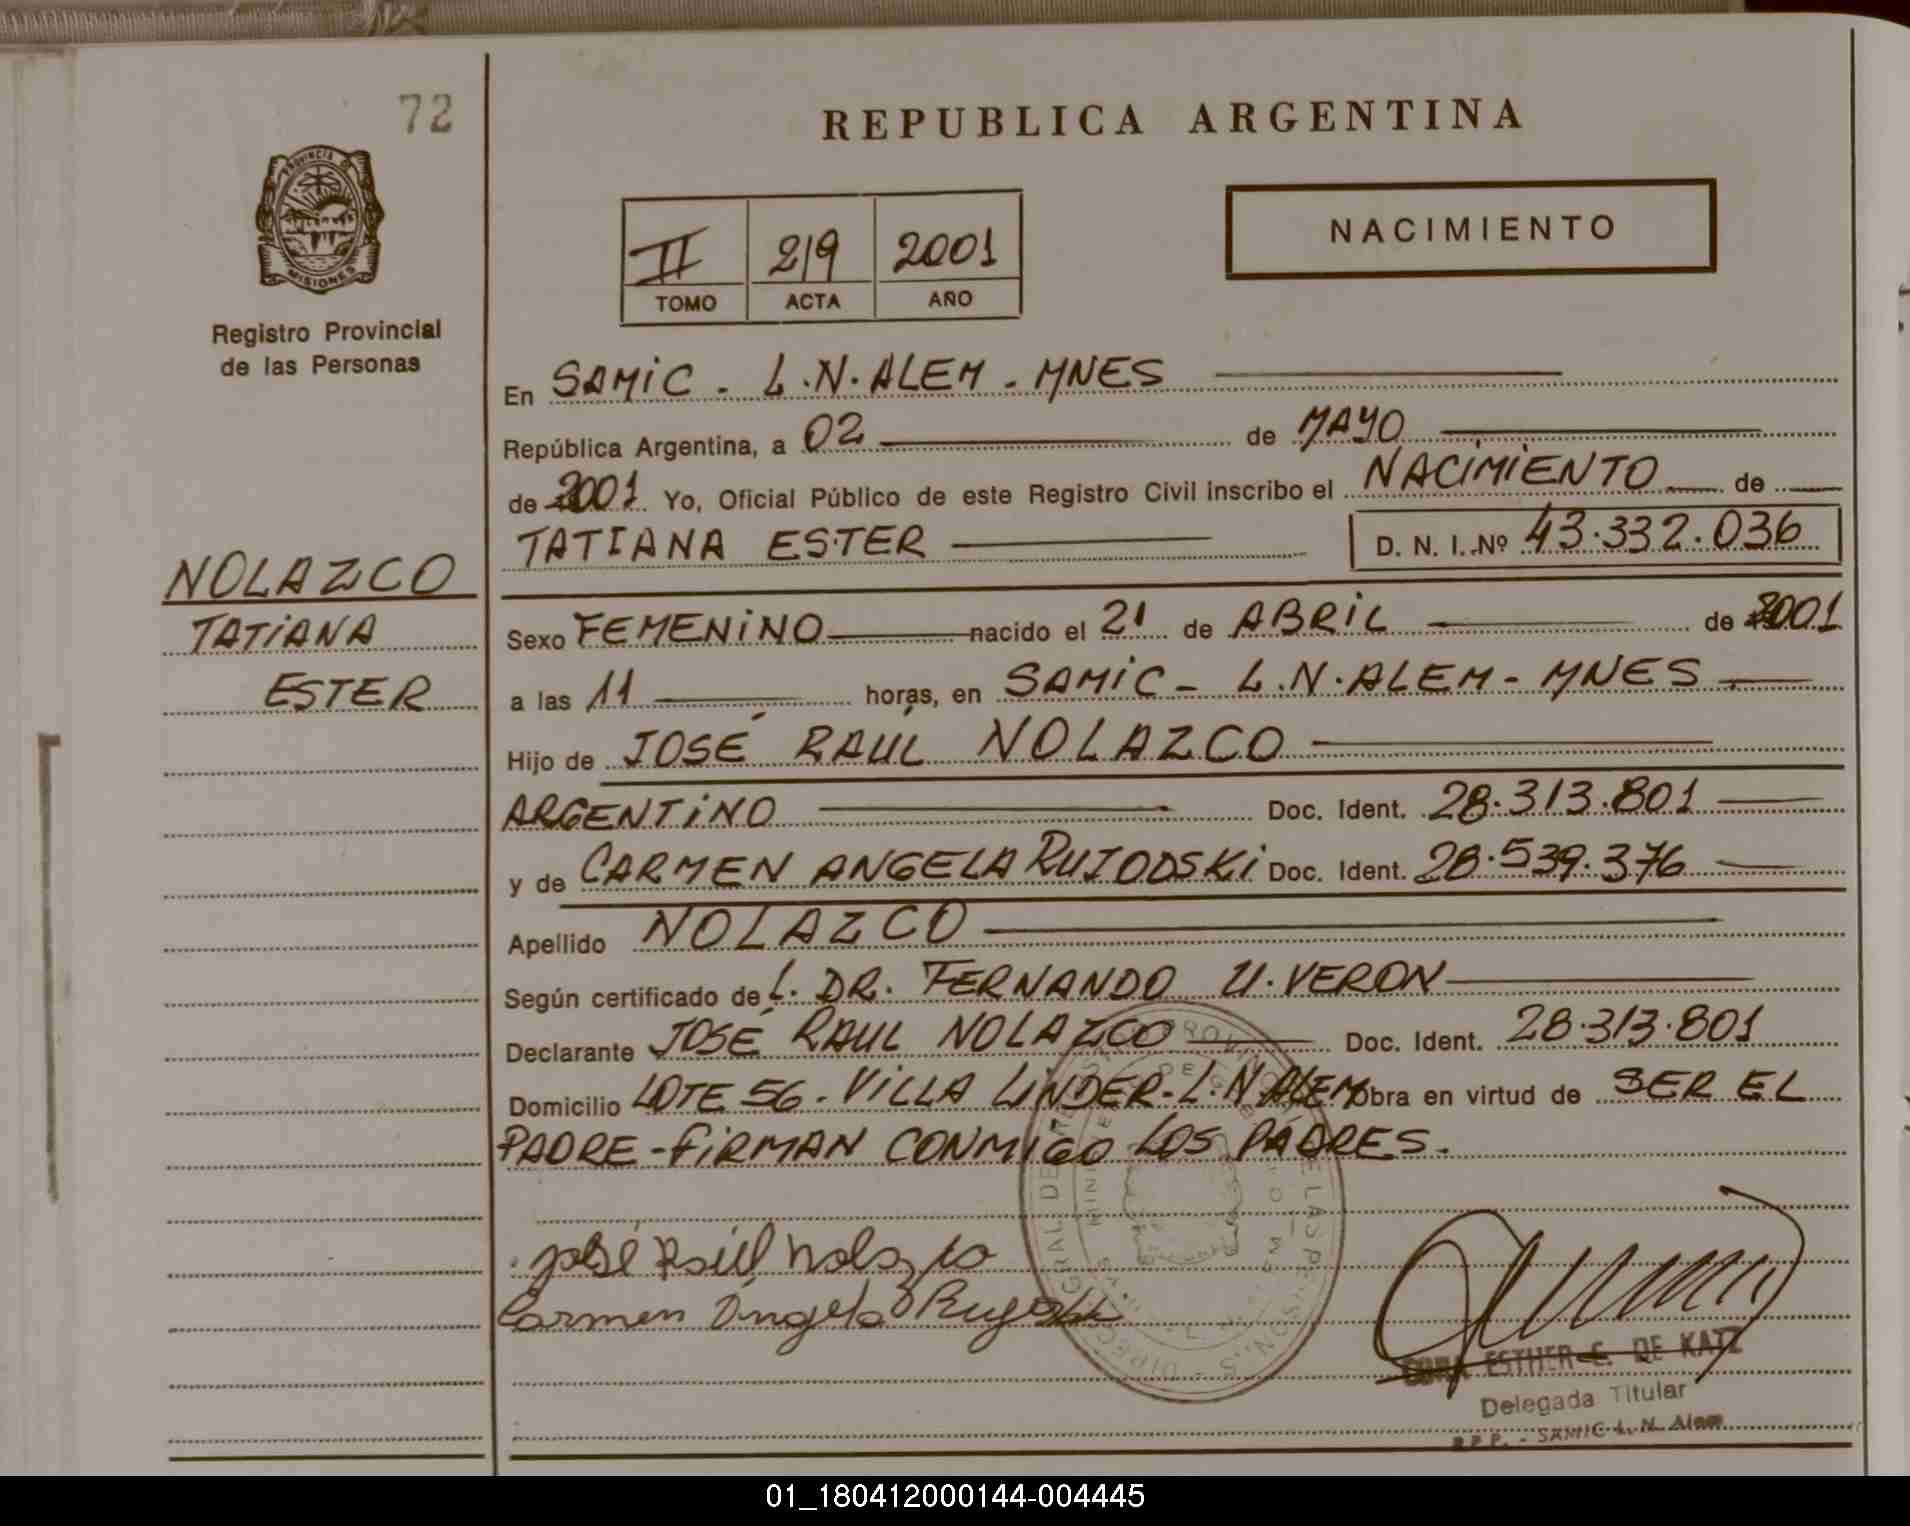 72
REPUBLICA ARGENTINA
PROVINCIA DE
MISIONES
Registro Provincial
de las Personas
II 219 2001
TOMO ACTA AÑO
NACIMIENTO
En SAMIC - L.N.ALEM - MNES
República Argentina, a 02 de MAYO
de 2001 Yo, Oficial Público de este Registro Civil inscribo el NACIMIENTO de
TATIANA ESTER D. N. I. Nº 43.332.036
NOLAZCO
TATIANA
ESTER
Sexo FEMENINO nacido el 21 de ABRIL de 2001
a las 11 horas, en SAMIC - L.N.ALEM - MNES
Hijo de JOSÉ RAÚL NOLAZCO
ARGENTINO Doc. Ident. 28.313.801
y de CARMEN ANGELA Doc. Ident. 28.539.376
Apellido NOLAZCO
Según certificado de L. DR. FERNANDO U. VERON
Declarante JOSÉ RAUL NOLAZCO Doc. Ident. 28.313.801
Domicilio LOTE 56 - VILLA LINDER - L.N ALEM obra en virtud de SER EL
PADRE - FIRMAN CONMIGO LOS PADRES.
José Raúl Nolazco
Carmen Angela
ESTHER E. DE KATZ
Delegada Titular
R.P.P. - SAMIC L. N. Alem
01_180412000144-004445